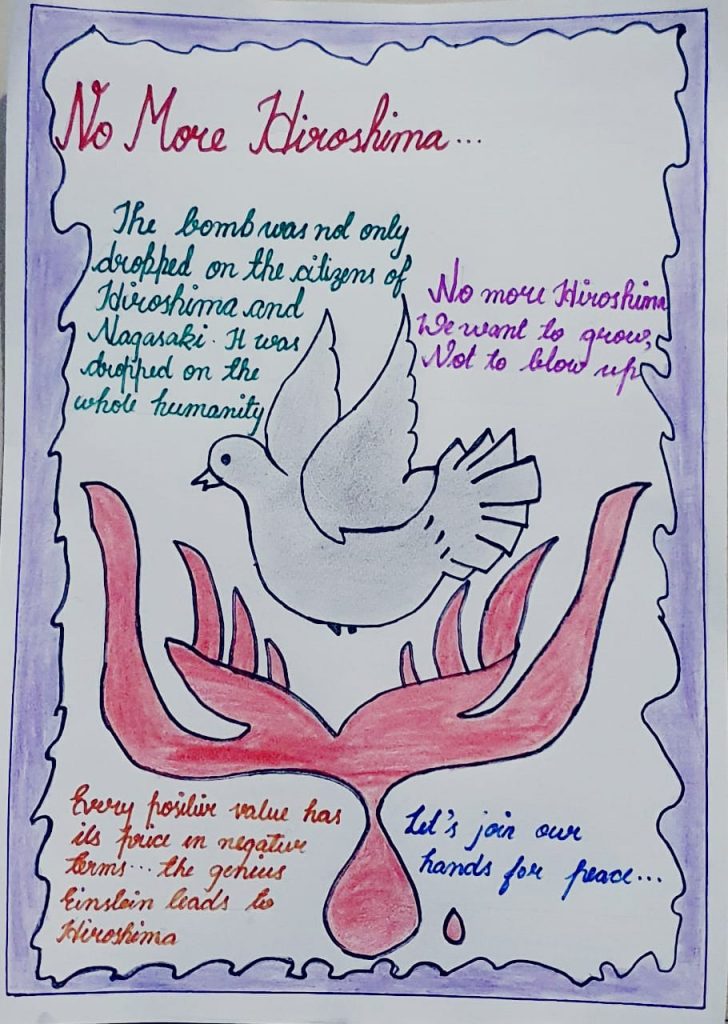 No More Hiroshima...
The bomb was not only
dropped on the citizens of
Hiroshima and
Nagasaki. It was
dropped on the
whole humanity
No more Hiroshima
We want to grow,
Not to blow up
Every positive value has
its price in negative
terms... the genius
Einstein leads to
Hiroshima
Let's join our
hands for peace...